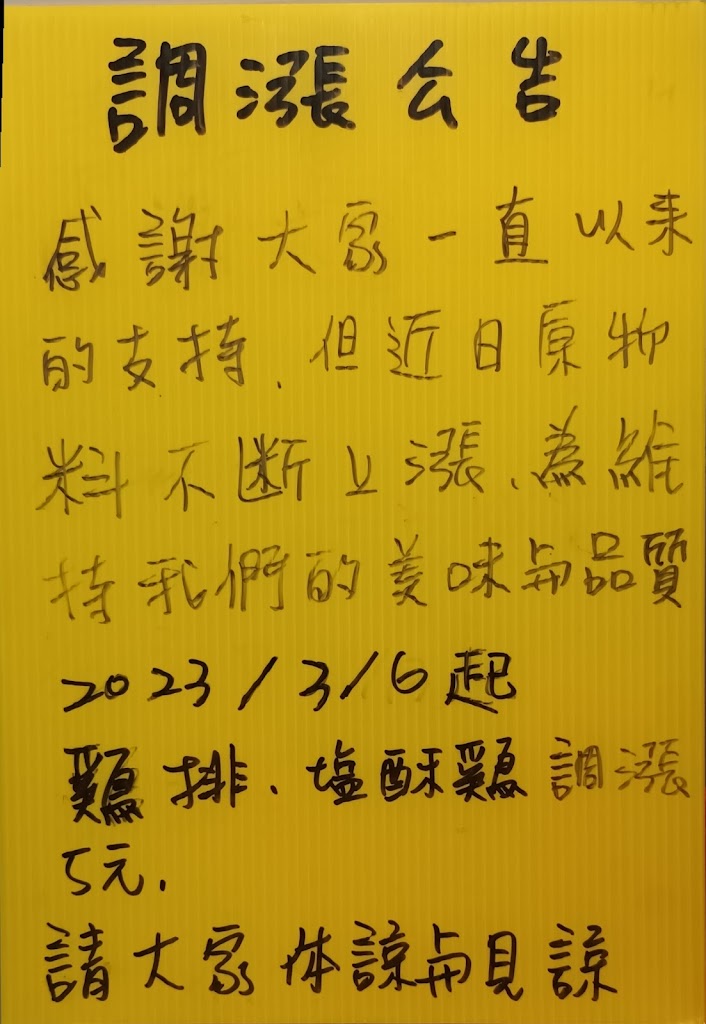 調漲公告
感謝大家一直以来
的支持.但近日原物
料不斷上漲.為維
持我們的美味与品質
2023/3/6起
鷄排.塩酥鷄調漲
5元.
請大家体諒与見諒